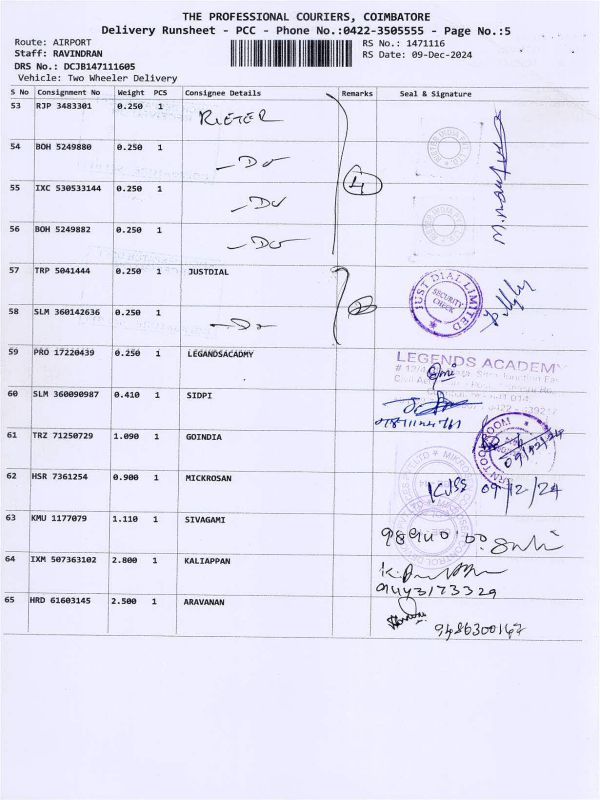 THE PROFESSIONAL COURIERS, COIMBATORE
Delivery Runsheet - PCC - Phone No.:0422-3505555 - Page No.:5
Route: AIRPORT
RS No.: 1471116
Staff: RAVINDRAN
RS Date: 09-Dec-2024
DRS No.: DCJB147111605
Vehicle: Two Wheeler Delivery
S No Consignment No Weight PCS Consignee Details Remarks Seal & Signature
53 RJP 3483301 0.250 1 RIETER
54 BOH 5249880 0.250 1 - Do
55 IXC 530533144 0.250 1 - Do
4
56 BOH 5249882 0.250 1 - Do
57 TRP 5041444 0.250 1 JUSTDIAL
JUST DIAL LIMITED
SECURITY CHECK
58 SLM 360142636 0.250 1 - Do
59 PRO 17220439 0.250 1 LEGANDSACADMY
LEGENDS ACADEMY
60 SLM 360090987 0.410 1 SIDPI
61 TRZ 71250729 1.090 1 GOINDIA
09/12/24
62 HSR 7361254 0.900 1 MICKROSAN
09/12/24
63 KMU 1177079 1.110 1 SIVAGAMI
64 IXM 507363102 2.800 1 KALIAPPAN
9443173329
65 HRD 61603145 2.500 1 ARAVANAN
9486300167